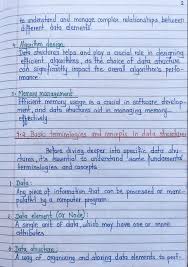 2
to understand and manage complex relationships between
different data elements.
4. Algorithm design
Data structures helps and play a crucial role in designing
efficient algorithms, as the choice of data structure
can significantly impact the overall algorithm's perfo-
rmance.
5. Memory management
Efficient memory usage is a crucial in software develop-
ment, and data structures aid in managing memory
effectively
1.2 Basic terminologies and concepts in data structures
Before diving deeper into specific data stru-
ctures, it's essential to understand some fundamental
terminologies and concepts.
1. Data:
Any piece of information that can be processed or mani-
pulated by a computer program.
2. Data element (or Node):
A single unit of data, which may have one or more
attributes.
3. Data structure:
A way of organizing and storing data elements to perf-